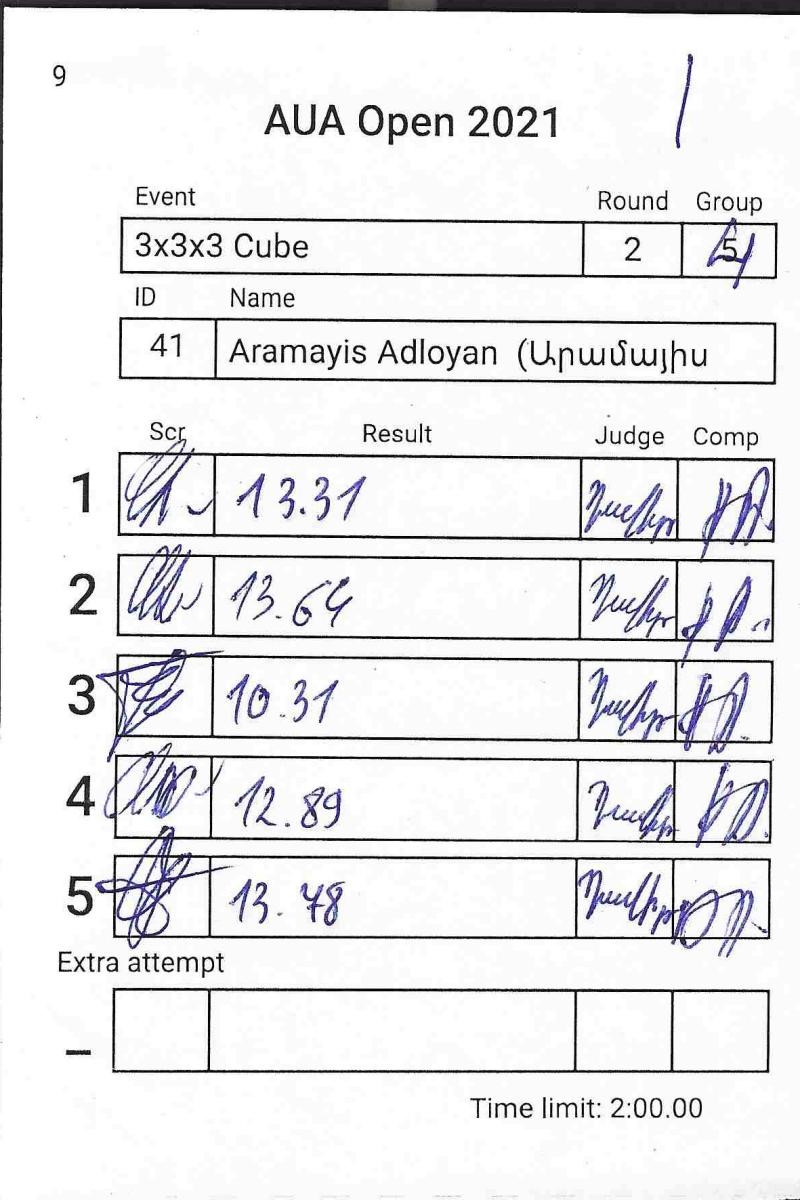 9
AUA Open 2021
Event Round Group
3x3x3 Cube 2 4
ID Name
41 Aramayis Adloyan (Արամայիս
Scr Result Judge Comp
1 13.31 Դավիթ
2 13.64 Դավիթ
3 10.31 Դավիթ
4 12.89 Դավիթ
5 13.78 Դավիթ
Extra attempt
–
Time limit: 2:00.00